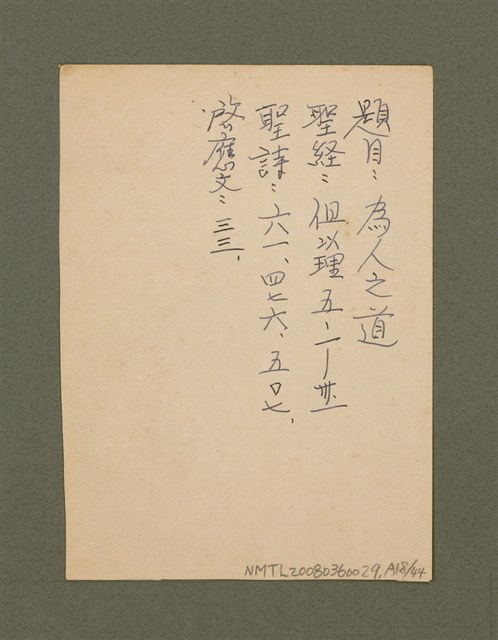 題目：為人之道
聖経：但以理五、一｜卅一
聖詩：六一、四七六、五〇七、
啟應文：三三、
NMTL20080360029, A18/44